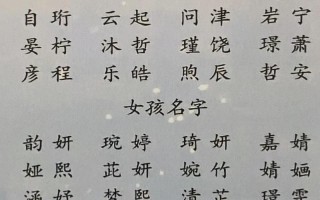 自珩 云起 问津 岩宁
晏柠 沐哲 瑾饶 璟萧
彦程 乐皓 煦辰 哲安
女孩名字
韵妍 琬婷 琦妍 嘉婧
娅熙 芷妍 婉竹 婧婳
涵妤 梦熙 清芷 璟雯